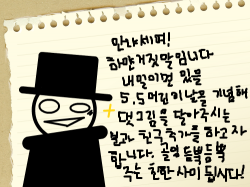 안냐세여!
하얀거짓말입니다
내일이면 있을
5.5 머검 이날을 기념해
댓글을 달아주시는
분과 친구추가를 하고자
합니다. 골영 듬뿍듬뿍
주는 친한 사이 됩시다!